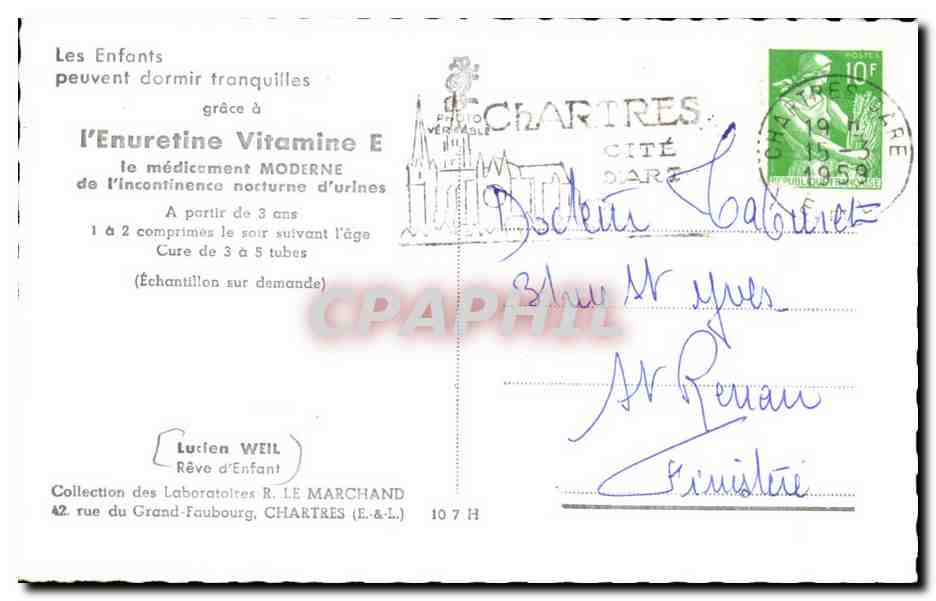 Les Enfants
peuvent dormir tranquilles
grâce à
l'Enuretine Vitamine E
le médicament MODERNE
de l'incontinence nocturne d'urines
A partir de 3 ans
1 à 2 comprimés le soir suivant l'âge
Cure de 3 à 5 tubes
(Échantillon sur demande)
Lucien WEIL
Rêve d'Enfant
Collection des Laboratoires R. LE MARCHAND
42, rue du Grand-Faubourg, CHARTRES (E.-&-L.)
10 7 H
PHOTO
VÉRITABLE
CHARTRES
CITÉ
D'ART
POSTES
10F
REPUBLIQUE FRANÇAISE
CHARTRES GARE
19 H
15 - 3
1959
E.
Docteur
3 rue St Yves
St Renan
Finistère
CPAPHIL